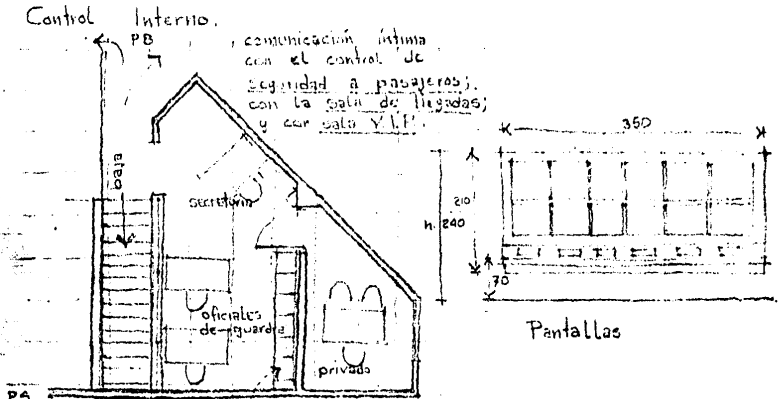 Control Interno.
PB
comunicación íntima
con el control de
seguridad a pasajeros;
con la sala de llegadas;
y con sala V.I.P.
baja
secretaria
oficiales
de guardia
privado
PA
350
210
h. 240
70
Pantallas